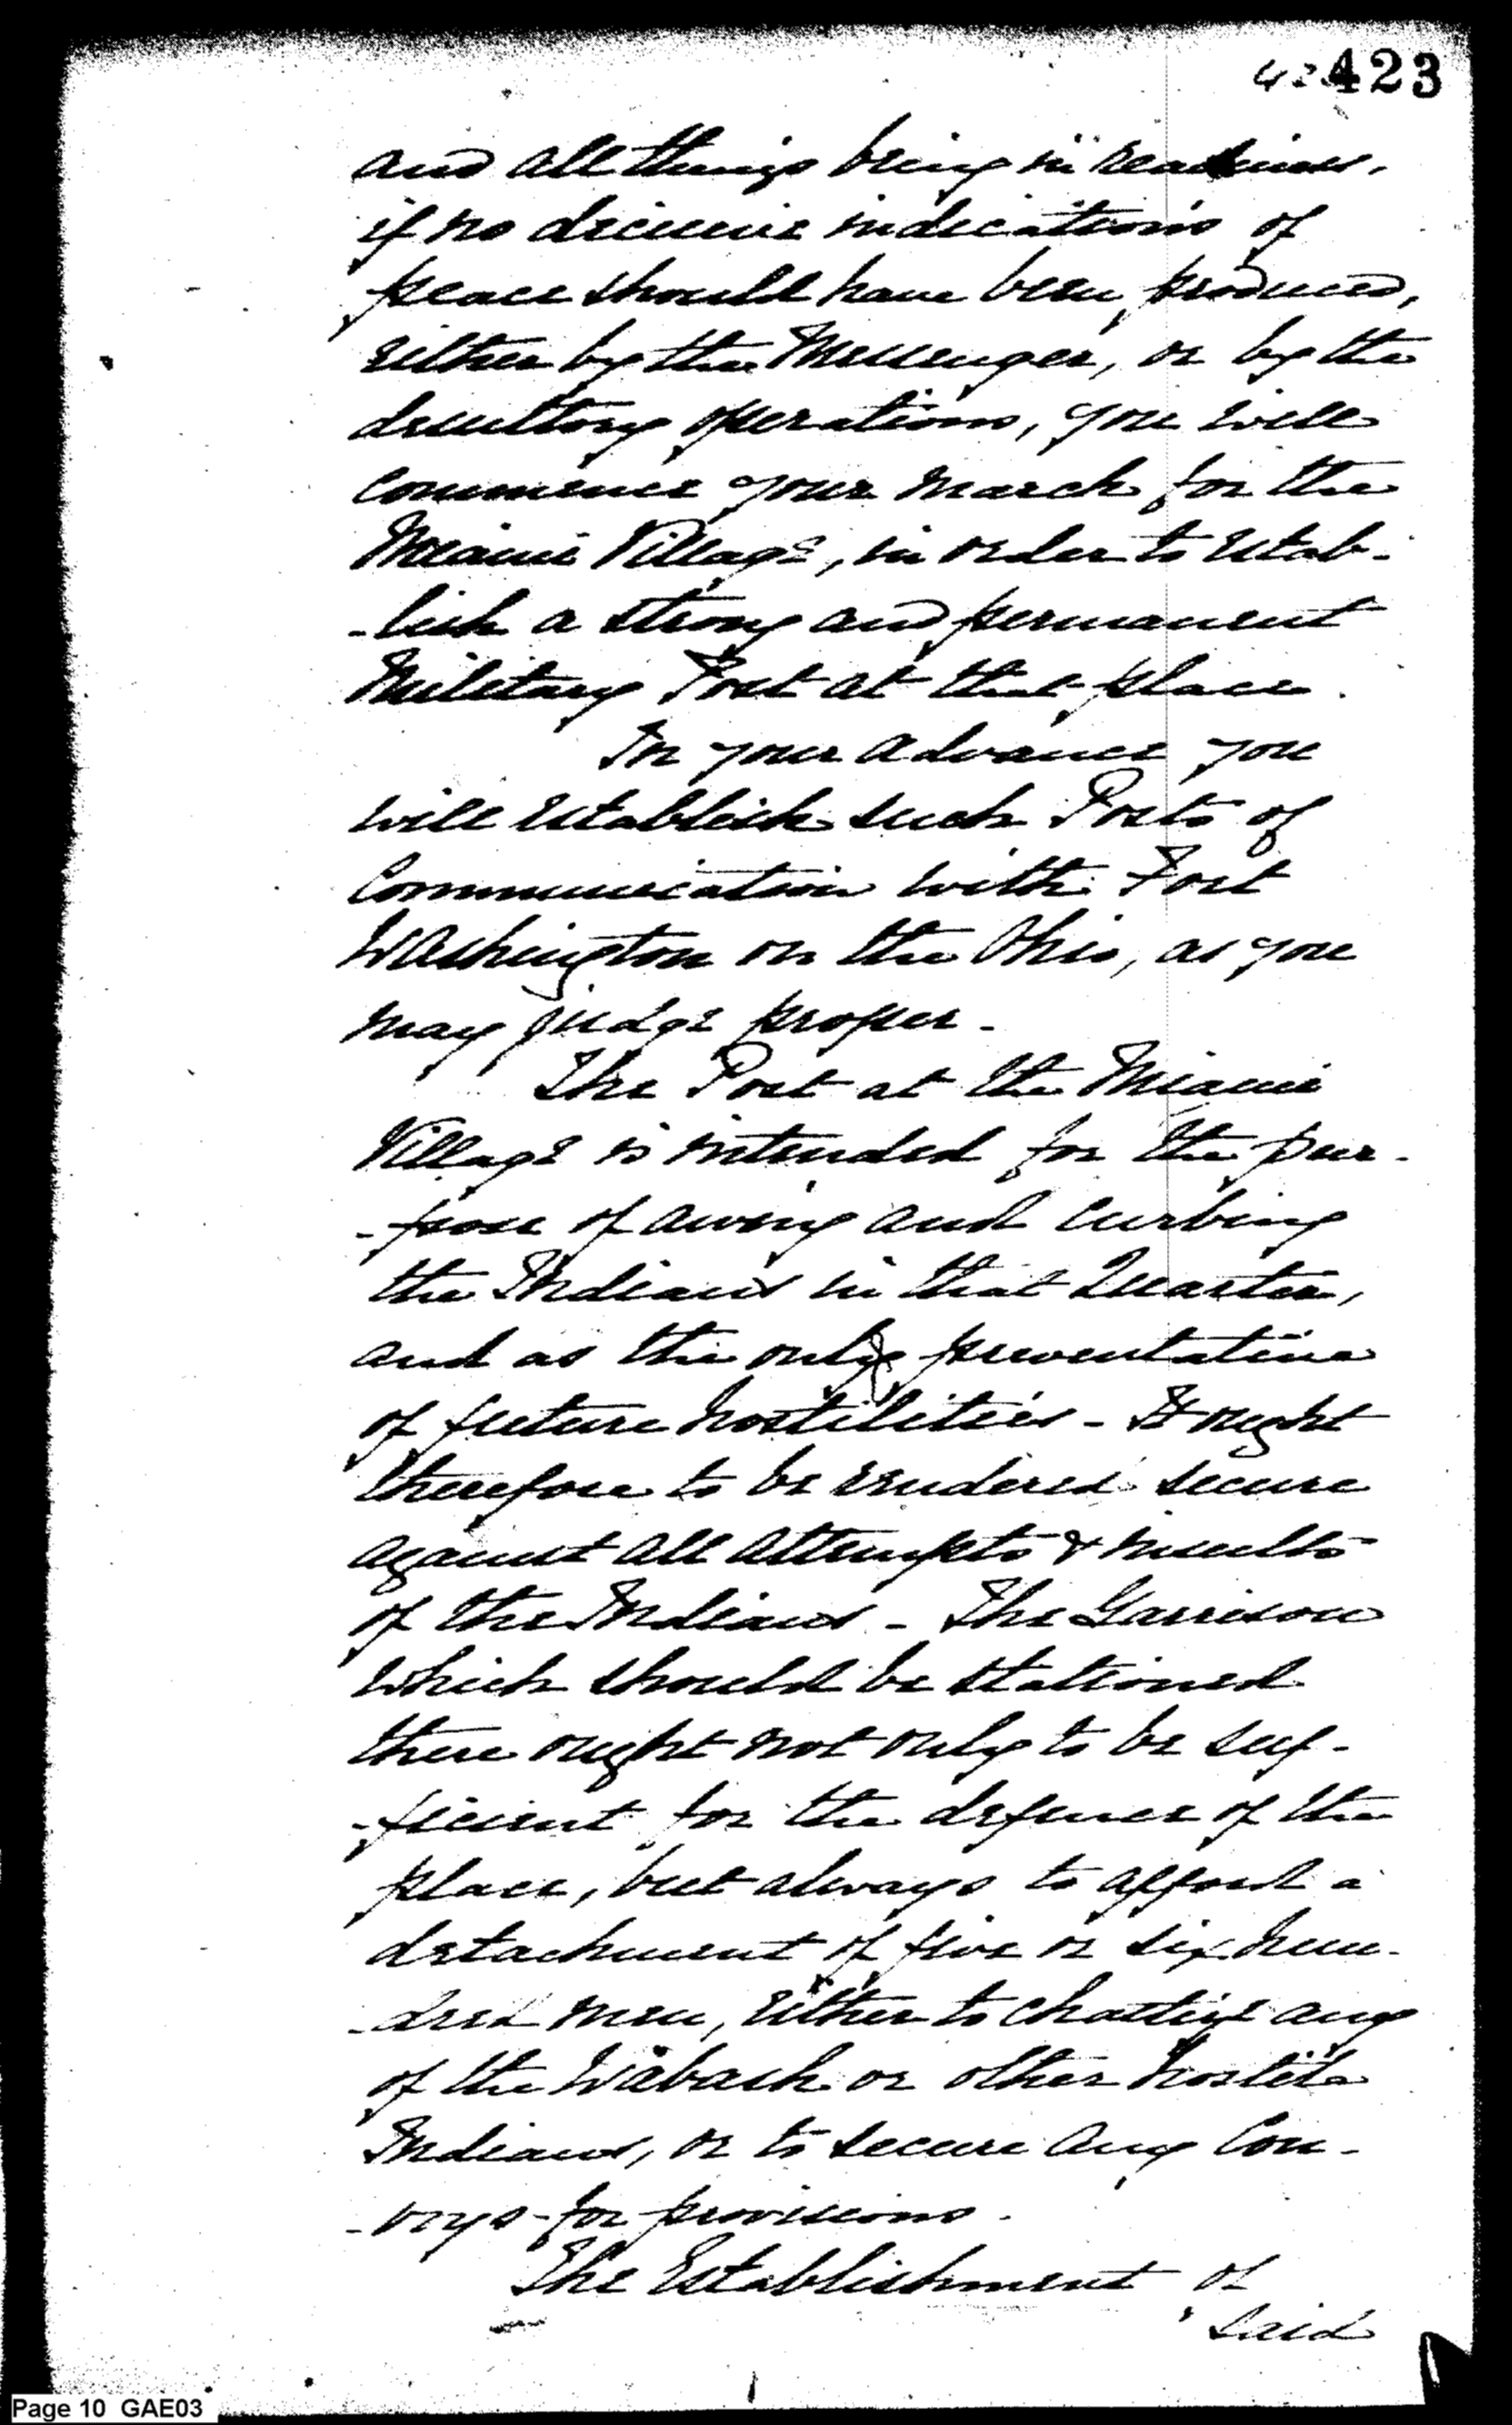 423
and all things being in readiness,
if no decisive indications of
peace should have been produced,
either by the Messenger, or by the
desultory operations, you will
commence your march for the
Miami Village, in order to estab-
-lish a strong and permanent
Military Post at that place.
In your advance you
will establish such Posts of
Communication with Fort
Washington on the Ohio, as you
may judge proper.
The Post at the Miami
Village is intended for the pur-
-pose of awing and curbing
the Indians in that Quarter,
and as the only preventative
of future hostilities - It ought
therefore to be rendered secure
against all attempts & insults
of the Indians - The Garrison
which should be stationed
there ought not only to be suf-
-ficient for the defence of the
place, but always to afford a
detachment of five or six hun-
-dred men, either to chastise any
of the Wabash or other hostile
Indians, or to secure any Con-
-voys for provisions.
The Establishment of
said
Page 10 GAE03